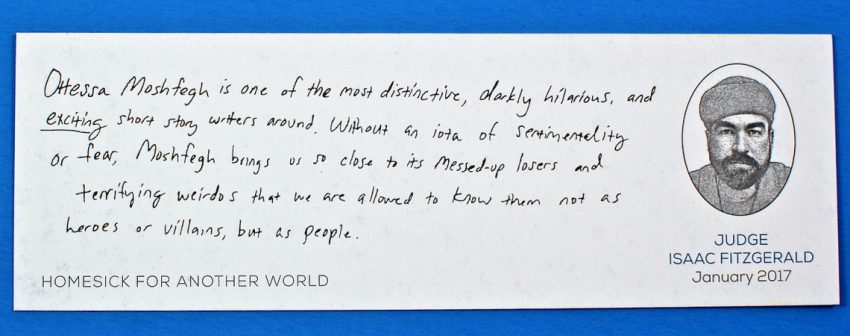 Ottessa Moshfegh is one of the most distinctive, darkly hilarious, and
exciting short story writers around. Without an iota of sentimentality
or fear, Moshfegh brings us so close to its messed-up losers and
terrifying weirdos that we are allowed to know them not as
heroes or villains, but as people.
HOMESICK FOR ANOTHER WORLD
JUDGE
ISAAC FITZGERALD
January 2017